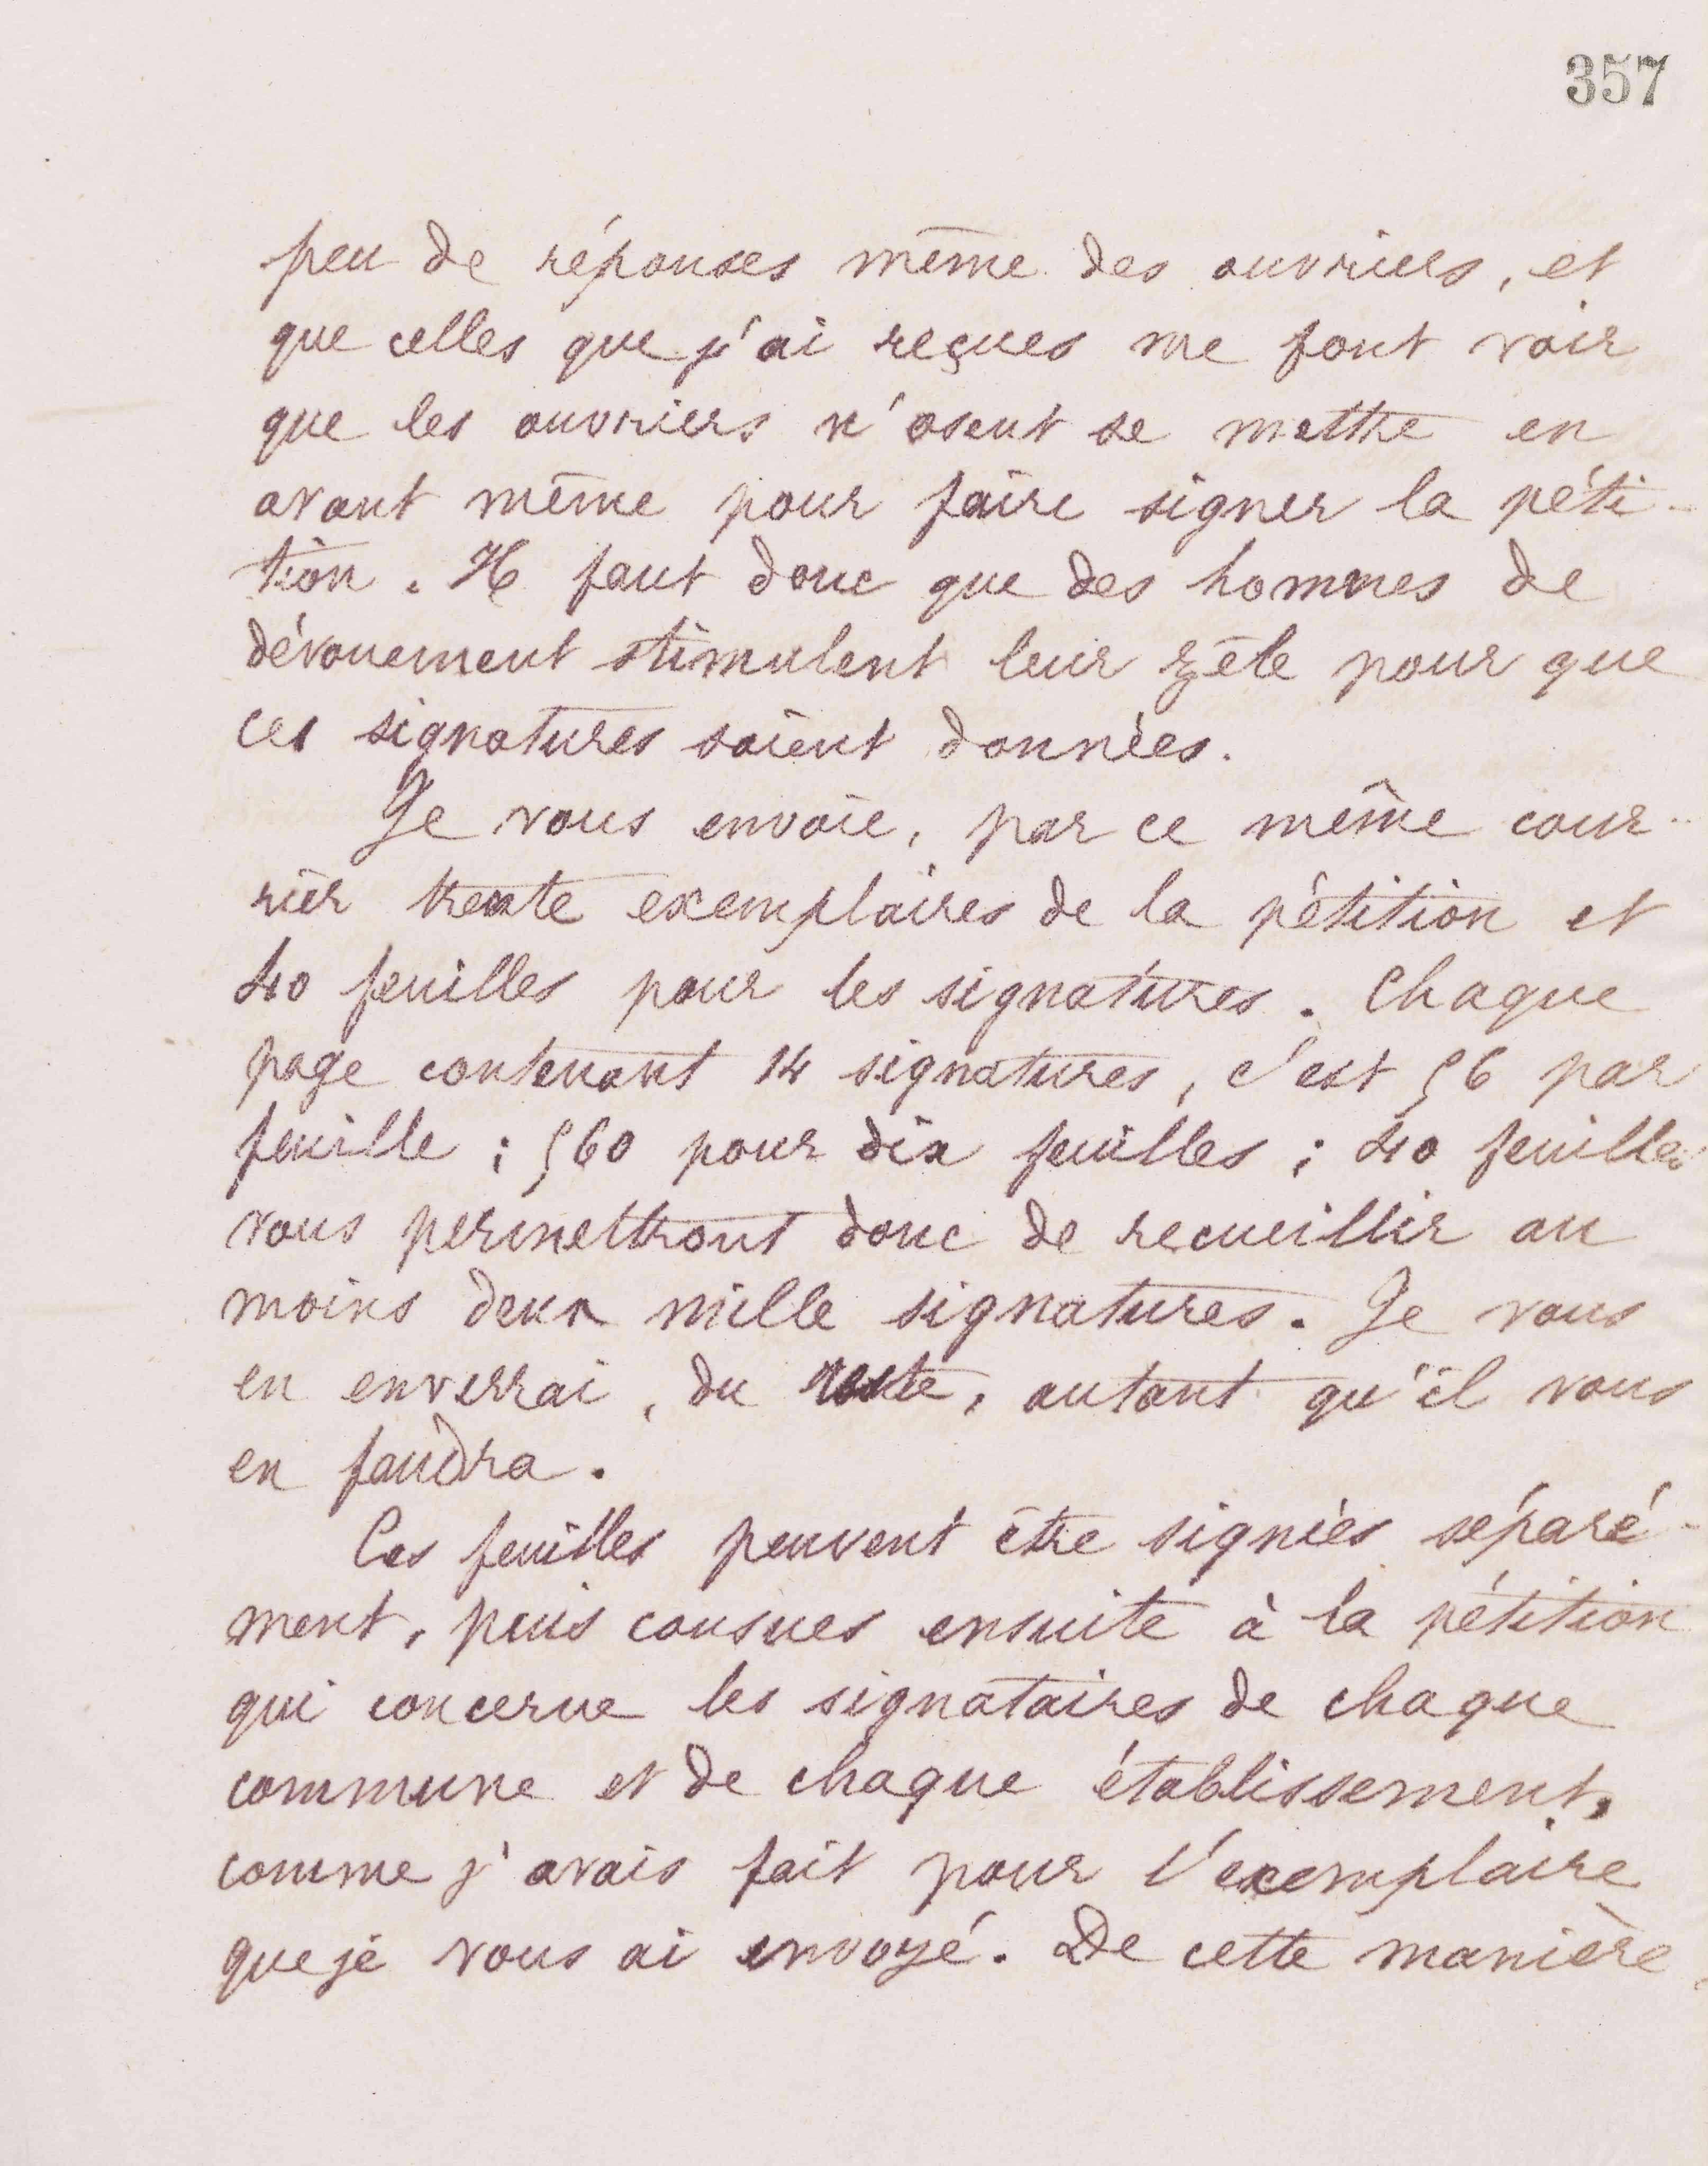 357
peu de réponses même des ouvriers, et
que celles que j'ai reçues me font voir
que les ouvriers n'osent se mettre en
avant même pour faire signer la péti-
tion. Il faut donc que des hommes de
dévouement stimulent leur zèle pour que
ces signatures soient données.
Je vous envoie, par ce même cour-
rier trente exemplaires de la pétition et
40 feuilles pour les signatures. Chaque
page contenant 14 signatures, c'est 56 par
feuille ; 560 pour dix feuilles ; 40 feuilles
vous permettront donc de recueillir au
moins deux mille signatures. Je vous
en enverrai, du reste, autant qu'il vous
en faudra.
Ces feuilles peuvent être signées séparé-
ment, puis cousues ensuite à la pétition
qui concerne les signataires de chaque
commune et de chaque établissement,
comme j'avais fait pour l'exemplaire
que je vous ai envoyé. De cette manière